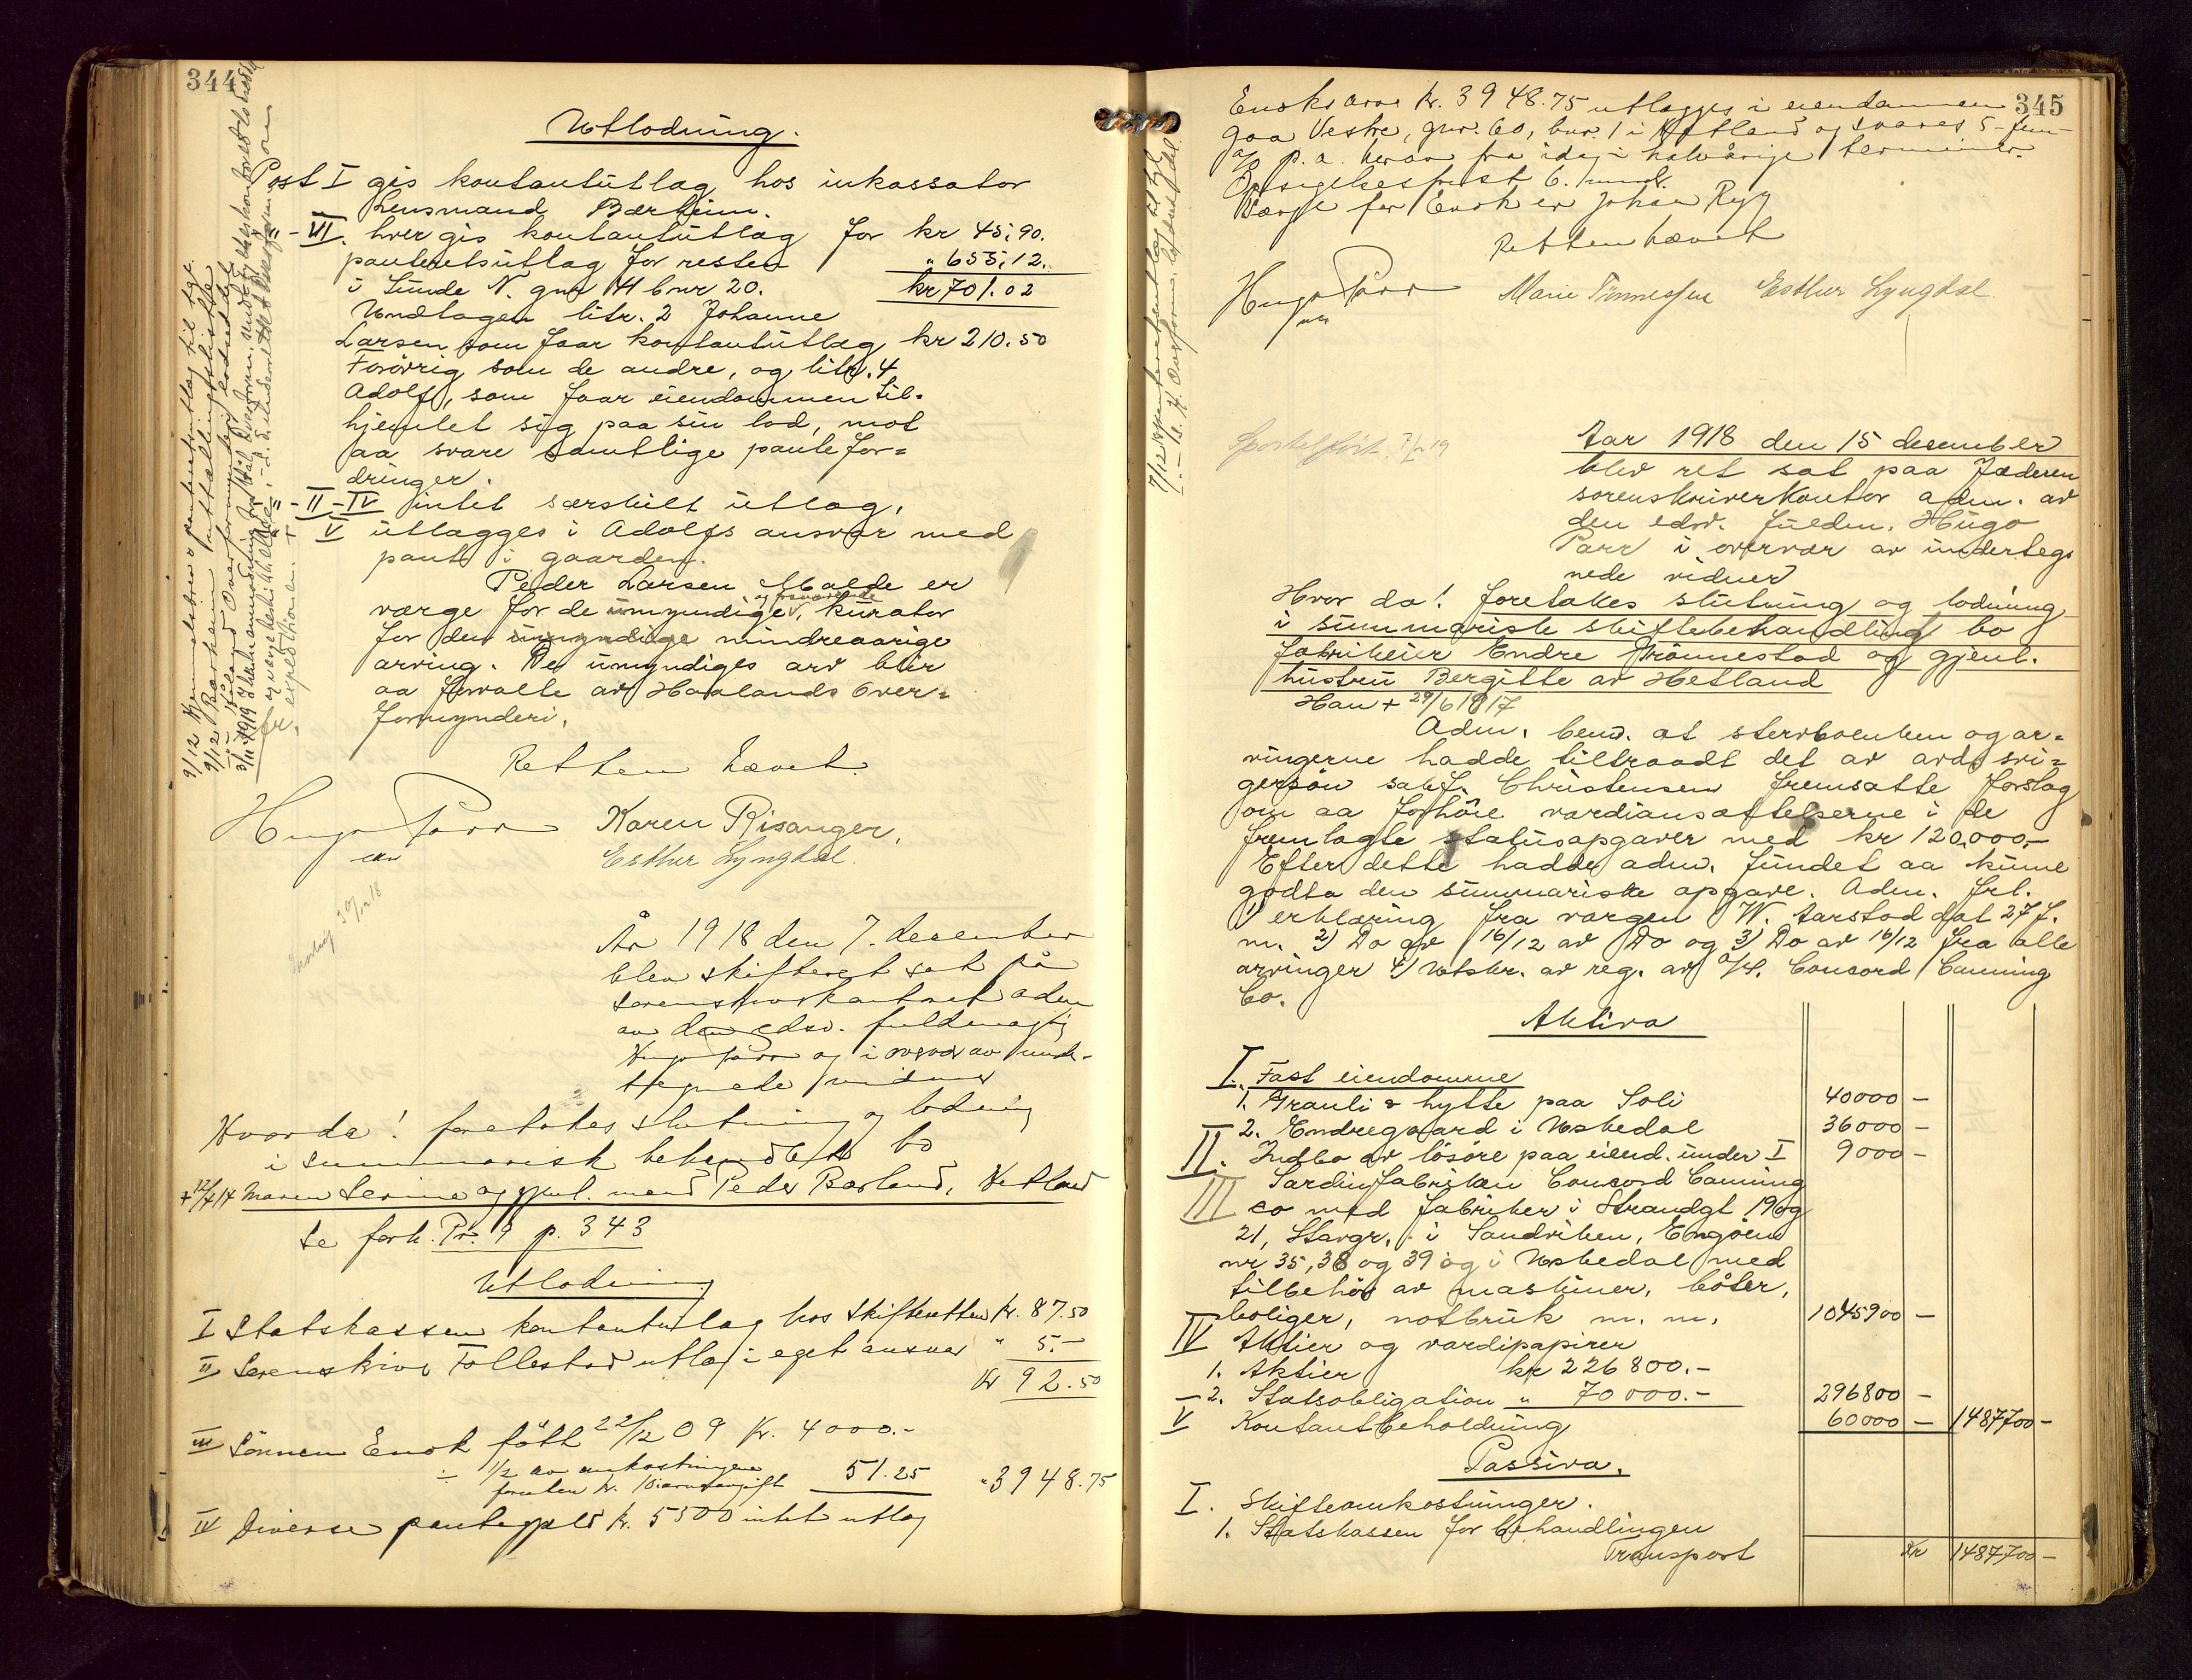 344
Utlodning.
Post I gis kontantutlag hos inkassator
Lensmand Bærheim.
- VI. hver gis kontantutlag for kr 45,90.
panteretsutlag for resten " 655,12.
i Lunde N. gnr 14 bnr 20. kr 701.02
Undtagen litr. 2 Johanne
Larsen som faar kontantutlag kr 210.50
Forövrig som de andre, og litr. 4
Adolf, som faar eiendommen til-
hjemlet sig paa sin lod, mot
aa svare samtlige pantefor=
dringer.
- II - IV intet særskilt utlag.
V utlægges i Adolfs ansvar med
pant i gaarden.
Peder Larsen Malde er
værge for de umyndige, kurator
for den umyndige mindreaarige
arving. De umyndiges arv blir
aa forvalte av Haalands Over=
formynderi.
Retten hævet.
Hugo Parr Karen Risanger.
Esther Lyngdal.
År 1918 den 7. desember
blev skifteret sat på
sorenskriverkontoret adm
av den edsv. fuldmægtig
Hugo Parr og i overvær av under-
tegnede vidner
Hvor da! foretokes slutning og lodning
i summarisk behandlet bo
+ 12/4 17 Maren Serine og gjenl. mand Peder Barland, Hetland
Se forh. Pr. 9 p. 343
Utlodning
I Statskassen kontantutlag hos Skifteretten kr. 87.50
II Sorenskriver Tollestad utlag i eget ansvar " 5.-
Kr 92.50
III Sönnen Enok född 22/12 09 kr. 4000.-
÷ 1/2 av omkostningene
foruten kr. 51.25 " 3948.75
IV Diverse pantegjeld kr. 5500 intet utlag
345
Enoks arv kr. 3948.75 utlægges i eiendommen
Vestre, gnr. 60, bnr 1 i Hetland og svares 5 - fem -
% p.a. herav fra idag i halvårige terminer.
Opsigelsesfrist 6. mnd.
Værge for Enok er Johan Ryg
Retten hævet
Hugo Parr Marie Tönnessen Esther Lyngdal.
Sportelfört. 7/2 19
Aar 1918 den 15 desember
blev ret sat paa Jæderen
sorenskriverkontor adm. av
den edsv. fuldm. Hugo
Parr i overvær av underteg-
nede vidner
Hvor da! foretokes slutning og lodning
i summarisk skiftebehandling bo
fabrikeier Endre Grönnestad og gjenl.
hustru Bergitte av Hetland
Han + 29/6 1917
Adm. bem. at sterboenken og ar=
vingerne hadde tiltraadt det av avd. svi=
gersön sakf. Christensen fremsatte forslag
om aa forhöie værdiansættelserne i de
fremlagte statusopgaver med kr 120,000.-
Efter dette hadde adm. fundet aa kunne
godta den summariske opgave. Adm. frl.
1) erklæring fra værgen W. Aarstad dat 27 f.
m. 2) Do av 16/12 av Do og 3) Do av 16/12 fra alle
arvinger 4) Utskr. av reg. av A/S. Concord Canning
Co.
Aktiva
I. Fast eiendomme
1. Granli & hytte paa Soli 40000 -
2. Endregaard i Usbedal 36000 -
II. Indbo av lösöre paa eiend. under I 9000 -
III Sardinfabrikken Concord Canning
co med fabriker i Strandgt 19 og
21, Stavgr., i Sandviken, Engöien
nr 35, 38 og 39 og i Usbedal med
tilbehör av maskiner, båter,
boliger, notbruk m. m. 1045900 -
IV Aktier og værdipapirer
1. Aktier kr 226800.-
- 2. Statsobligation " 70000.- 296800 -
V Kontantbeholdning 60000 - 1487700 -
Passiva.
I. Skifteomkostninger.
1. Statskassen for behandlingen
Transport Kr 1487700 -